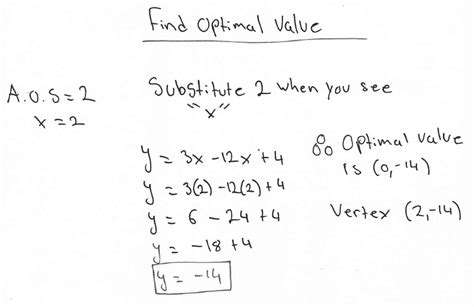 Find Optimal Value
A.O.S=2
x=2
Substitute 2 when you see
"x"
y = 3x-12x+4
y = 3(2)-12(2)+4
y = 6 - 24 +4
y = -18 +4
y = -14
∴ Optimal value
is (0,-14)
Vertex (2,-14)